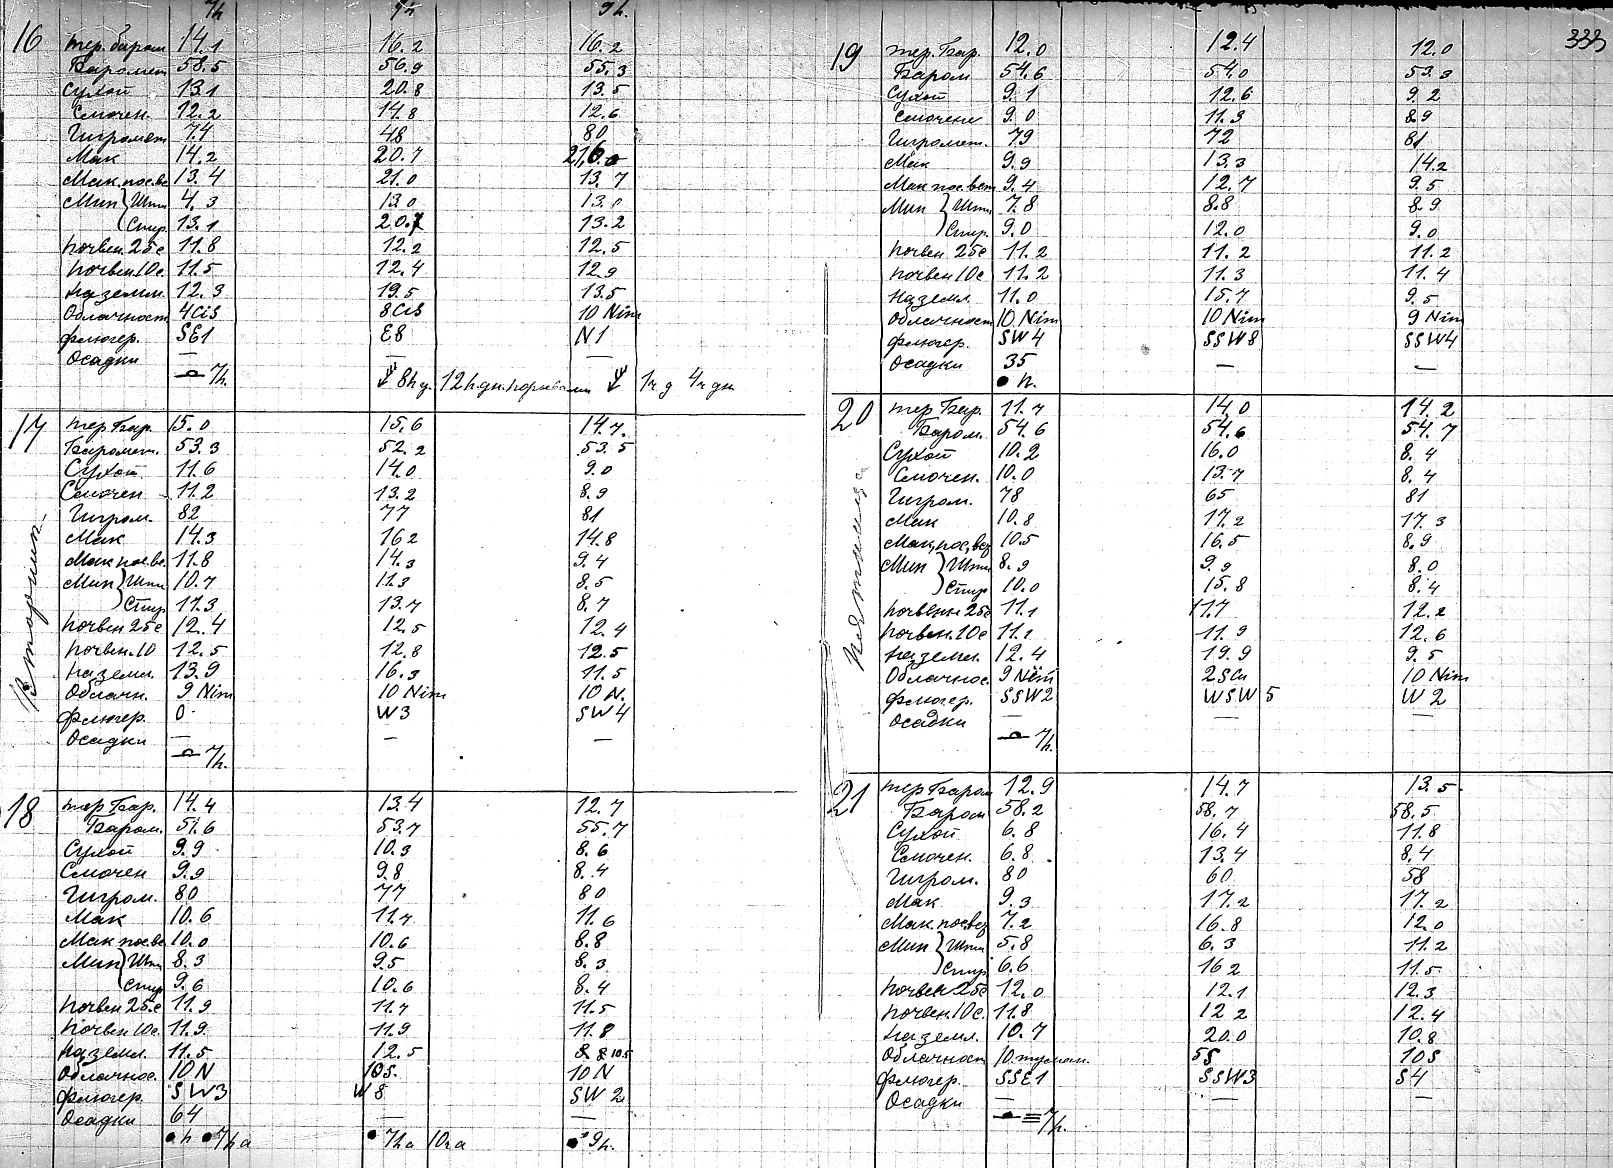 7h 1h 9h.
16 тер. баром 14.1 16.2 16.2
Баромет 58.5 56.9 55.3
Сухой 13.1 20.8 13.5
Смочен. 12.2 14.8 12.6
Гигромет 74 48 80
Мак 14.2 20.7 21.6
Мак. пос. вс 13.4 21.0 13.7
Мин Шти 4.3 13.0 13.0
Спир. 13.1 20.7 13.2
почвен. 25с 11.8 12.2 12.5
почвен. 10с. 11.5 12.4 12.9
наземн. 12.3 19.5 13.5
Облачност 4 CiS 8 CiS 10 Nim
флюгер. SE1 E8 N1
Осадки — — —
7h. 8h д. 12h дн. порывами 1ч д 4ч дн
17 тер. Бар. 15.0 15.6 14.7.
Баромет. 53.3 52.2 53.5
Сухой 11.6 14.0 9.0
Смочен 11.2 13.2 8.9
Гигром. 82 77 81
Вторник.
Мак 14.3 16 2 14.8
Мак пос. вс. 11.8 14.3 9.4
Мин Шти 10.7 11.3 8.5
Спир 11.3 13.7 8.7
почвен 25с 12.4 12.5 12.4
почвен. 10 12.5 12.8 12.5
наземн. 13.9 16.3 11.5
Облачн. 9 Nim 10 Nim 10 N.
флюгер. 0 W3 SW4
Осадки — — —
7h.
18 тер Бар. 14.4 13.4 12.7
Баром. 51.6 53.7 55.7
Сухой 9.9 10.3 8.6
Смочен 9.9 9.8 8.4
Гигром. 80 77 80
Мак 10.6 11.7 11.6
Мак пос. вс 10.0 10.6 8.8
Мин Шти 8.3 9.5 8.3
Спир 9.6 10.6 8.4
почвен 25с 11.9 11.7 11.5
почвен 10с. 11.9 11.9 11.8
наземл. 11.5 12.5 10.5
Облачнос. 10 N 10 S. 10 N
флюгер. SW3 W8 SW2
Осадки 64 — —
h 7h a 7h a 10h a 9h.
333
19 тер. Бар. 12.0 12.4 12.0
Баром 54.6 54.0 53.3
Сухой 9.1 12.6 9.2
Смочен 9.0 11.3 8.9
Гигромет. 79 72 81
Мак 9.9 13.3 14.2
Мак пос. вет 9.4 12.7 9.5
Мин Шти 7.8 8.8 8.9
Спир. 9.0 12.0 9.0
почвен 25с 11.2 11.2 11.2
почвен 10с 11.2 11.3 11.4
наземл. 11.0 15.7 9.5
Облачност 10 Nim 10 Nim 9 Nim
флюгер. SW4 SSW8 SSW4
Осадки 35 — —
h.
20 тер Бар. 11.7 14.0 14.2
Баром. 54.6 54.6 54.7
Сухой 10.2 16.0 8.4
Смочен. 10.0 13.7 8.4
Гигром. 78 65 81
Пятница
Мак 10.8 17.2 17.3
Мак, пос, вез 10.5 16.5 8.9
Мин Шти 8.9 9.9 8.0
Спир 10.0 15.8 8.4
почвенн 25с 11.1 11.7 12.2
почвен. 10с 11.1 11.9 12.6
наземн. 12.4 19.9 9.5
Облачнос. 9 Nim 2 SCu 10 Nim
флюгер. SSW2 WSW5 W2
Осадки — — —
7h.
21 тер Баром 12.9 14.7 13.5
Баром 58.2 58.7 58.5
Сухой 6.8 16.4 11.8
Смочен. 6.8 13.4 8.4
Гигром. 80 60 58
Мак 9.3 17.2 17.2
Мак. пос. вез 7.2 16.8 12.0
Мин Шти 5.8 6.3 11.2
Спир 6.6 16 2 11.5
почвен 25с 12.0 12.1 12.3
почвен. 10с. 11.8 12 2 12.4
наземл. 10.7 20.0 10.8
Облачност 10 туман. 5S 10S
флюгер. SSE1 SSW3 S4
Осадки — — —
7h.